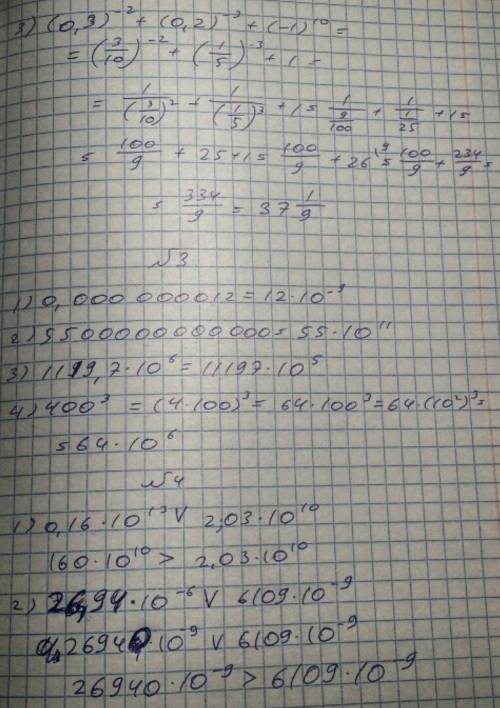 3) (0,3)^-2 + (0,2)^-3 + (-1)^10 =
= (3/10)^-2 + (1/5)^-3 + 1 =
= 1/(3/10)^2 + 1/(1/5)^3 + 1 = 1/(9/100) + 1/(1/25) + 1 =
= 100/9 + 25 + 1 = 100/9 + 26^\9 = 100/9 + 234/9 =
= 334/9 = 37 1/9
№3
1) 0,000 000 000012 = 12·10^-9
2) 5500000000000 = 55·10^11
3) 1119,7·10^6 = 11197·10^5
4) 400^3 = (4·100)^3 = 64·100^3 = 64·(10^2)^3 =
= 64·10^6
№4
1) 0,16·10^13 V 2,03·10^10
160·10^10 > 2,03·10^10
2) 26,94·10^-6 V 6109·10^-9
26940·10^-9 V 6109·10^-9
26940·10^-9 > 6109·10^-9